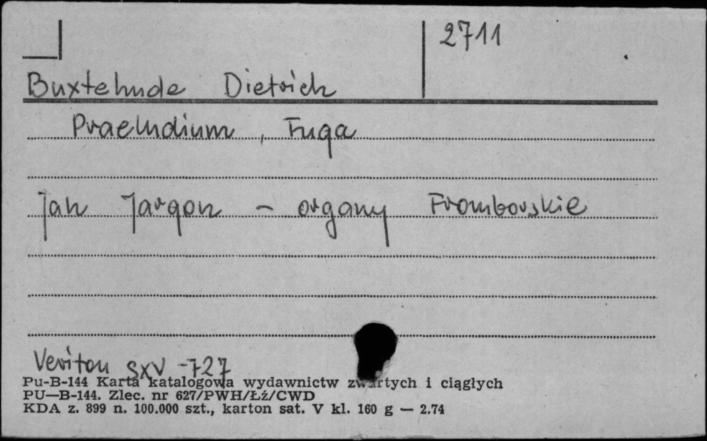 2711
Buxtehude Dietrich
Praeludium, Fuga
Jan Jargon - organy Fromborskie
Veriton SXV -727
Pu-B-144 Karta katalogowa wydawnictw zwartych i ciągłych
PU—B-144. Zlec. nr 627/PWH/Łź/CWD
KDA z. 899 n. 100.000 szt., karton sat. V kl. 160 g — 2.74